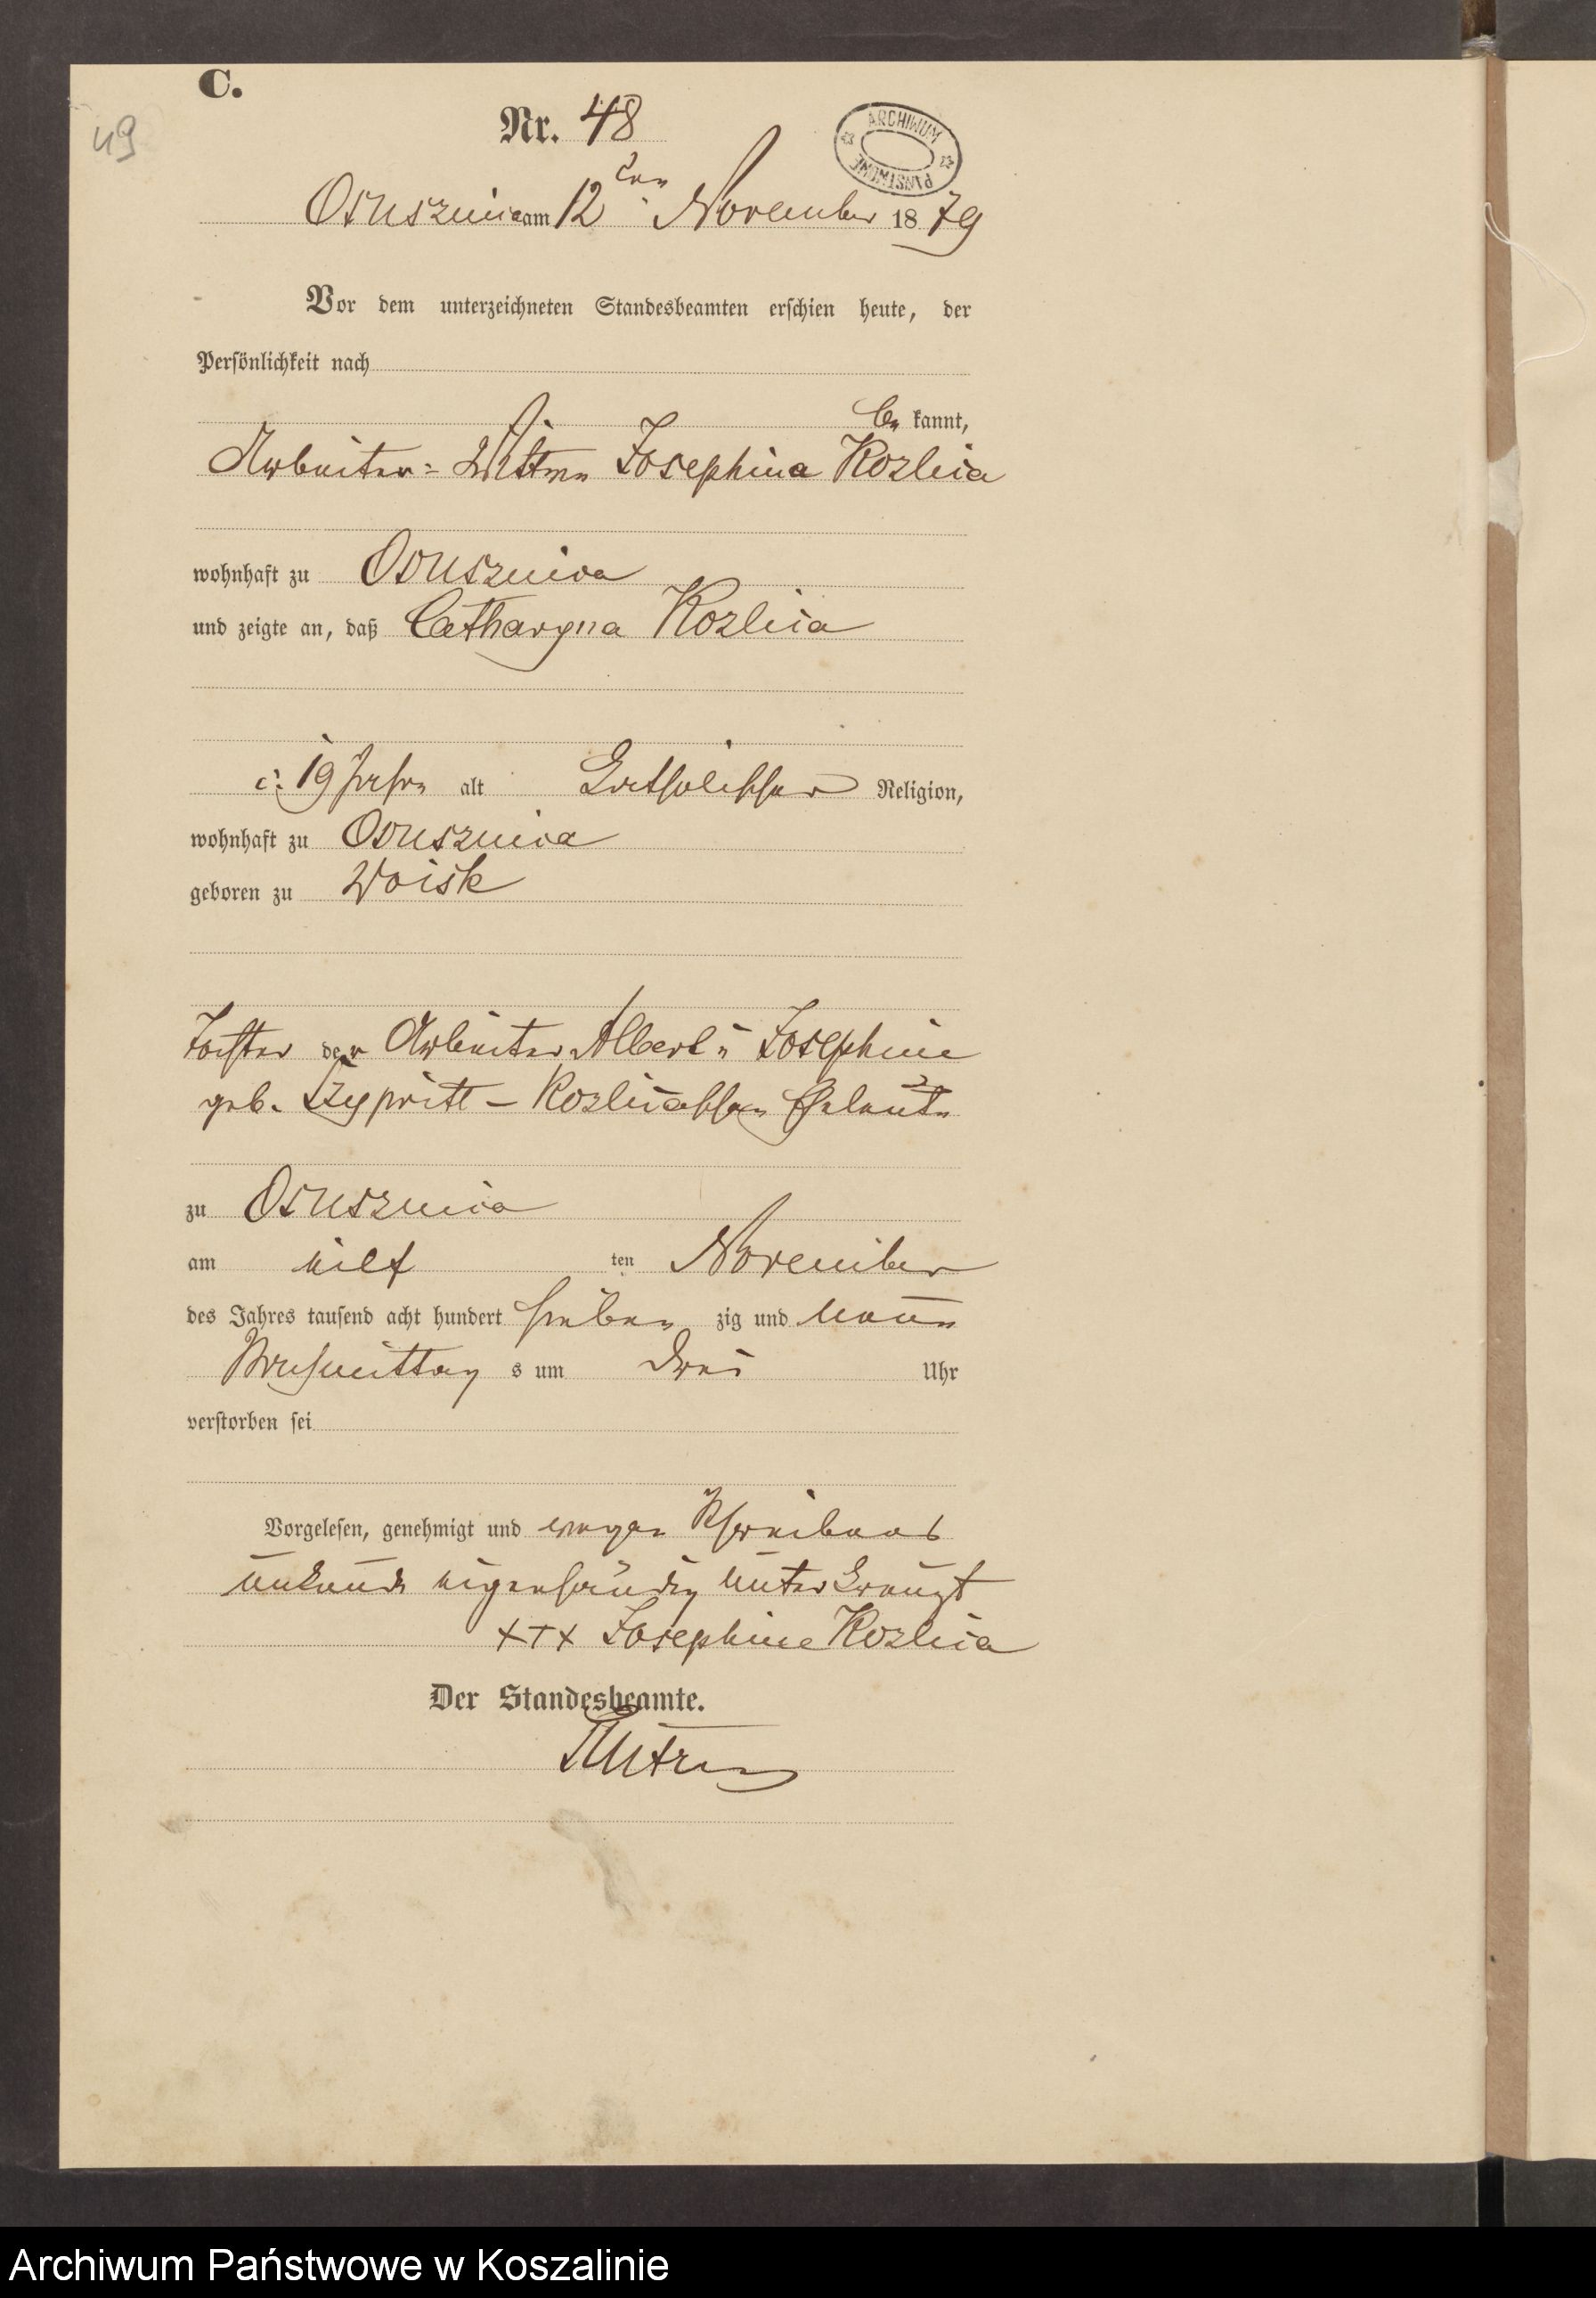 C.
49
Nr. 48
ARCHIWUM PAŃSTWOWE
Osusznica am 12ten November 1879
Vor dem unterzeichneten Standesbeamten erschien heute, der
Persönlichkeit nach
be kannt,
Arbeiter-Wittwe Josephina Kozlica
wohnhaft zu Osusznica
und zeigte an, daß Catharyna Kozlica
c. 19 Jahre alt katholischer Religion,
wohnhaft zu Osusznica
geboren zu Woisk
Tochter der Arbeiter Albert u Josephine
geb. -Kozlicaschen Eheleute
zu Osusznica
am eilf ten November
des Jahres tausend acht hundert sieben zig und neun
Nachmittag s um drei Uhr
verstorben sei
Vorgelesen, genehmigt und wegen Schreibens
unkunde eigenhändig unterkreuzt
+++ Josephine Kozlica
Der Standesbeamte.
Archiwum Państwowe w Koszalinie